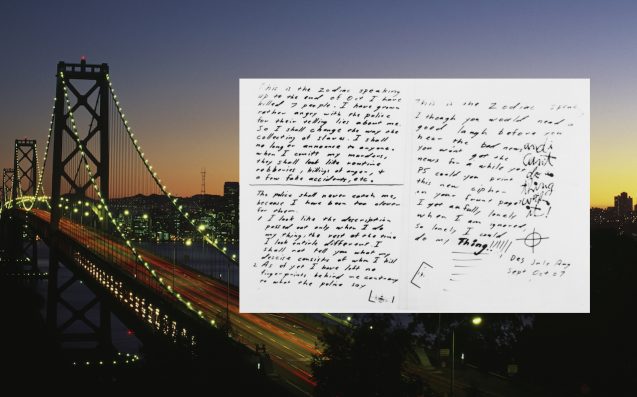 This is the Zodiac speaking
up to the end of Oct I have
killed 7 people. I have grown
rather angry with the police
for their telling lies about me.
So I shall change the way the
collecting of slaves. I shall
no longer announce to anyone.
when I comitt my murders,
they shall look like routine
robberies, killings of anger, +
a few fake accidents, etc.
The police shall never catch me,
because I have been too clever
for them.
1 I look like the description
passed out only when I do
my thing, the rest of the time
I look entirle different. I
shall not tell you what my
descise consists of when I kill
2 As of yet I have left no
fingerprints behind me contrary
to what the police say
This is the Zodiac
I though you would need a
good laugh before you
hear the bad news
you won't get the
news for a while yet
PS could you print
this new cipher
on your frunt page?
I get awfully lonely
when I am ignored,
So lonely I could
do my Thing!!!!!!
and i
can't
do a
thing
with
it!
Des July Aug
Sept Oct = 7